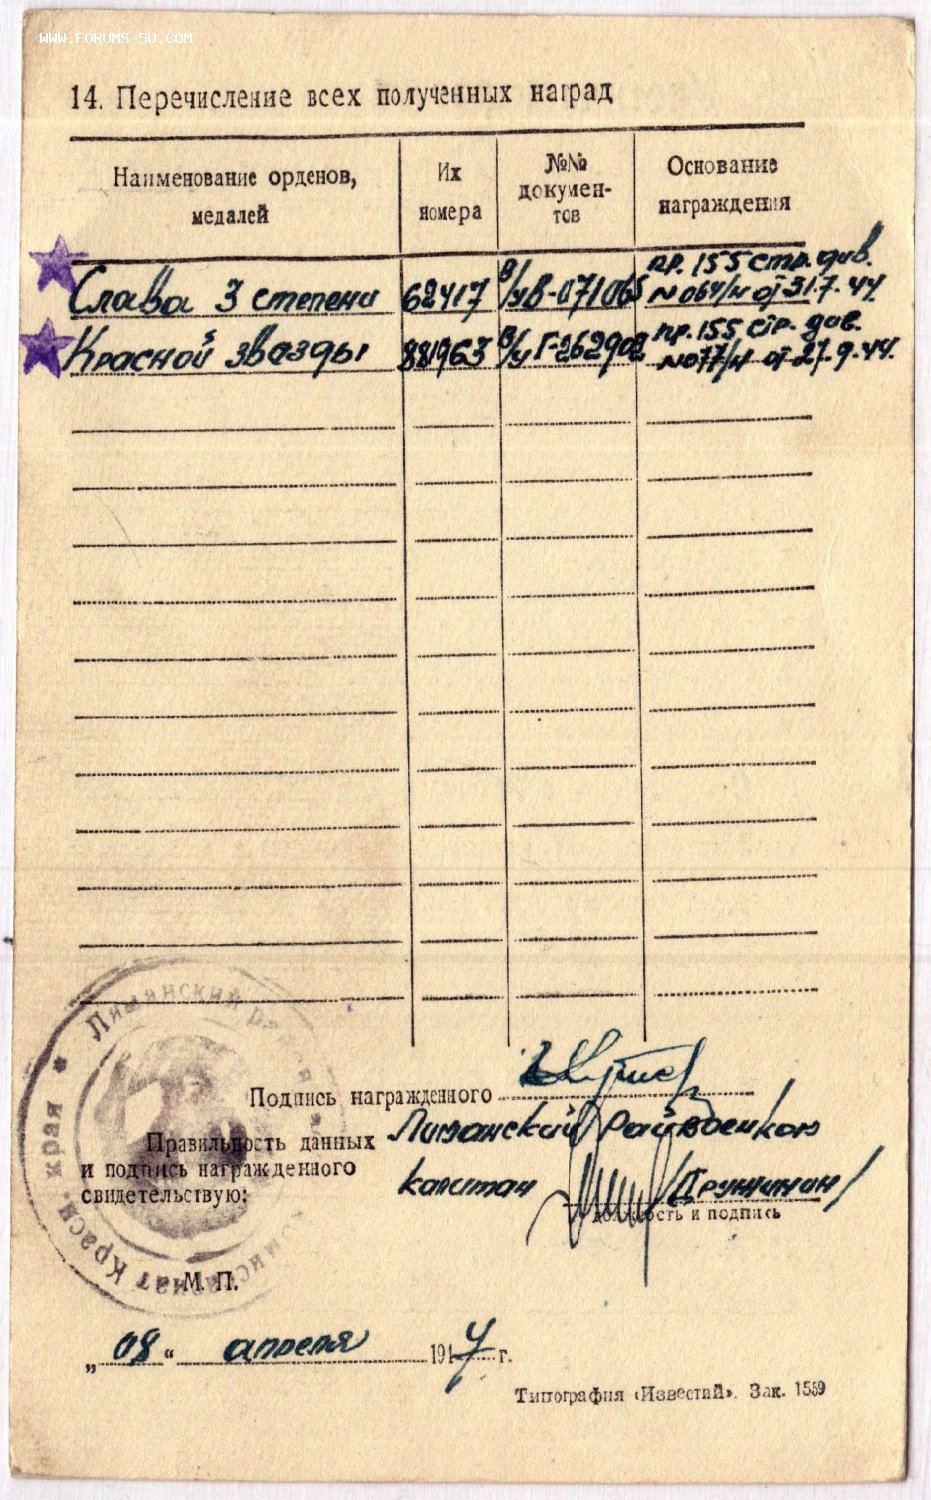 WWW.FORUMS-SU.COM
14. Перечисление всех полученных наград
Наименование орденов, медалей
Их номера
№№ документов
Основание награждения
Слава 3 степени 62417 в/у В-071065 пр. 155 стр. див. №064/н от 31.7.44.
Красной звазды 881963 в/у Г-262902 пр. 155 стр. див. №077/н от 27.9.44.
Подпись награжденного
Лиманский Райвоенком
Правильность данных
и подпись награжденного
свидетельствую:
капитан /Дружинин/
должность и подпись
Лиманский
край
Красн.
М. П.
„08“ апреля 1947 г.
Типография «Известий». Зак. 1559